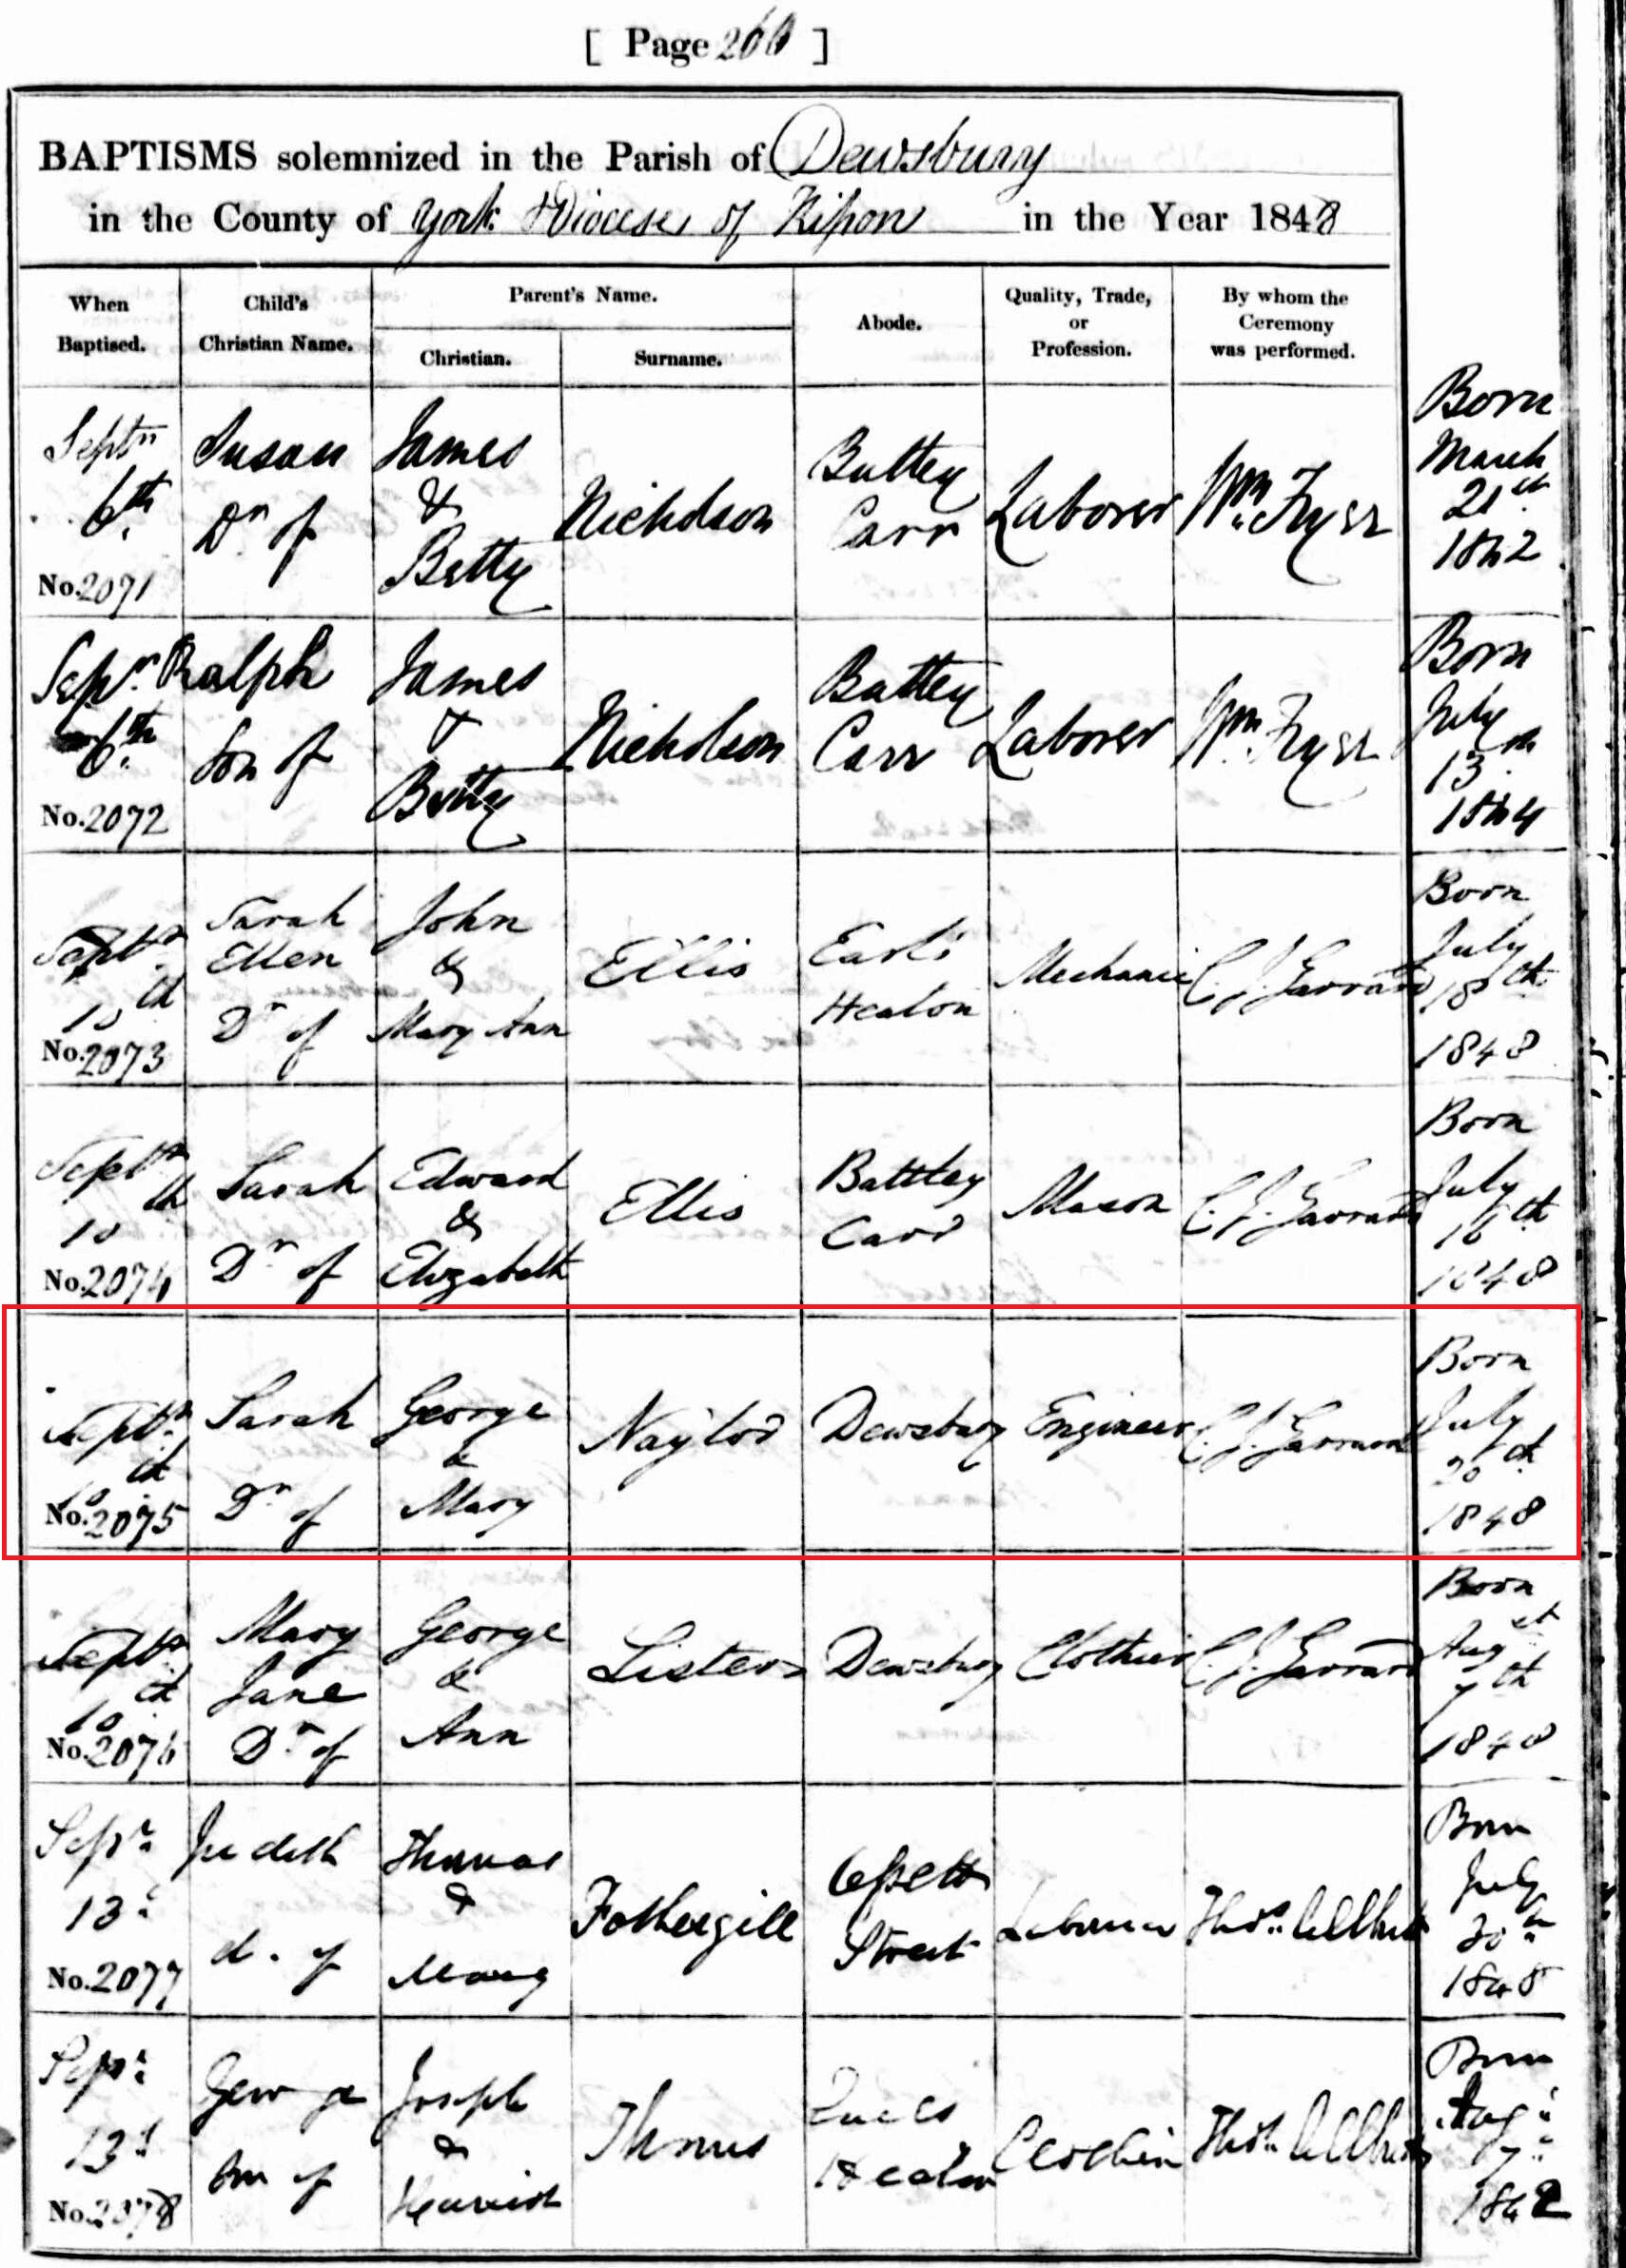 [ Page 260 ]
BAPTISMS solemnized in the Parish of Dewsbury
in the County of York & Diocese of Ripon in the Year 1848
When Baptised.
Child's Christian Name.
Parent's Name.
Christian.
Surname.
Abode.
Quality, Trade, or Profession.
By whom the Ceremony was performed.
Septr
6th
No. 2071
Susan
Dr of
James
&
Betty
Nicholson
Battey
Carr
Laborer
Wm Fryer
Born
March
21st
1842
Sepr
6th
No. 2072
Ralph
Son of
James
+
Betty
Nicholson
Battey
Carr
Laborer
Wm Fryer
Born
July
13th
1844
Septr
10th
No. 2073
Sarah
Ellen
Dr of
John
&
Mary Ann
Ellis
Earls
Heaton
Mechanic
C. J. Garrard
Born
July
18th
1848
Septr
10th
No. 2074
Sarah
Dr of
Edward
&
Elizabeth
Ellis
Battley
Carr
Mason
C. J. Garrard
Born
July
16th
1848
Septr
10th
No. 2075
Sarah
Dr of
George
&
Mary
Naylor
Dewsbury
Engineer
C. J. Garrard
Born
July
20th
1848
Septr
10th
No. 2076
Mary
Jane
Dr of
George
&
Ann
Lister
Dewsbury
Clothier
C. J. Garrard
Born
Augst
7th
1848
Sepr
13th
No. 2077
Judith
d. of
Thomas
+
Mary
Fothergill
Street
Labourer
Thos Allbutt
Born
July
30th
1848
Sepr
13th
No. 2078
George
son of
Joseph
&
Harriet
Thomas
Earls
Heaton
Clothier
Thos Allbutt
Born
Aug
7th